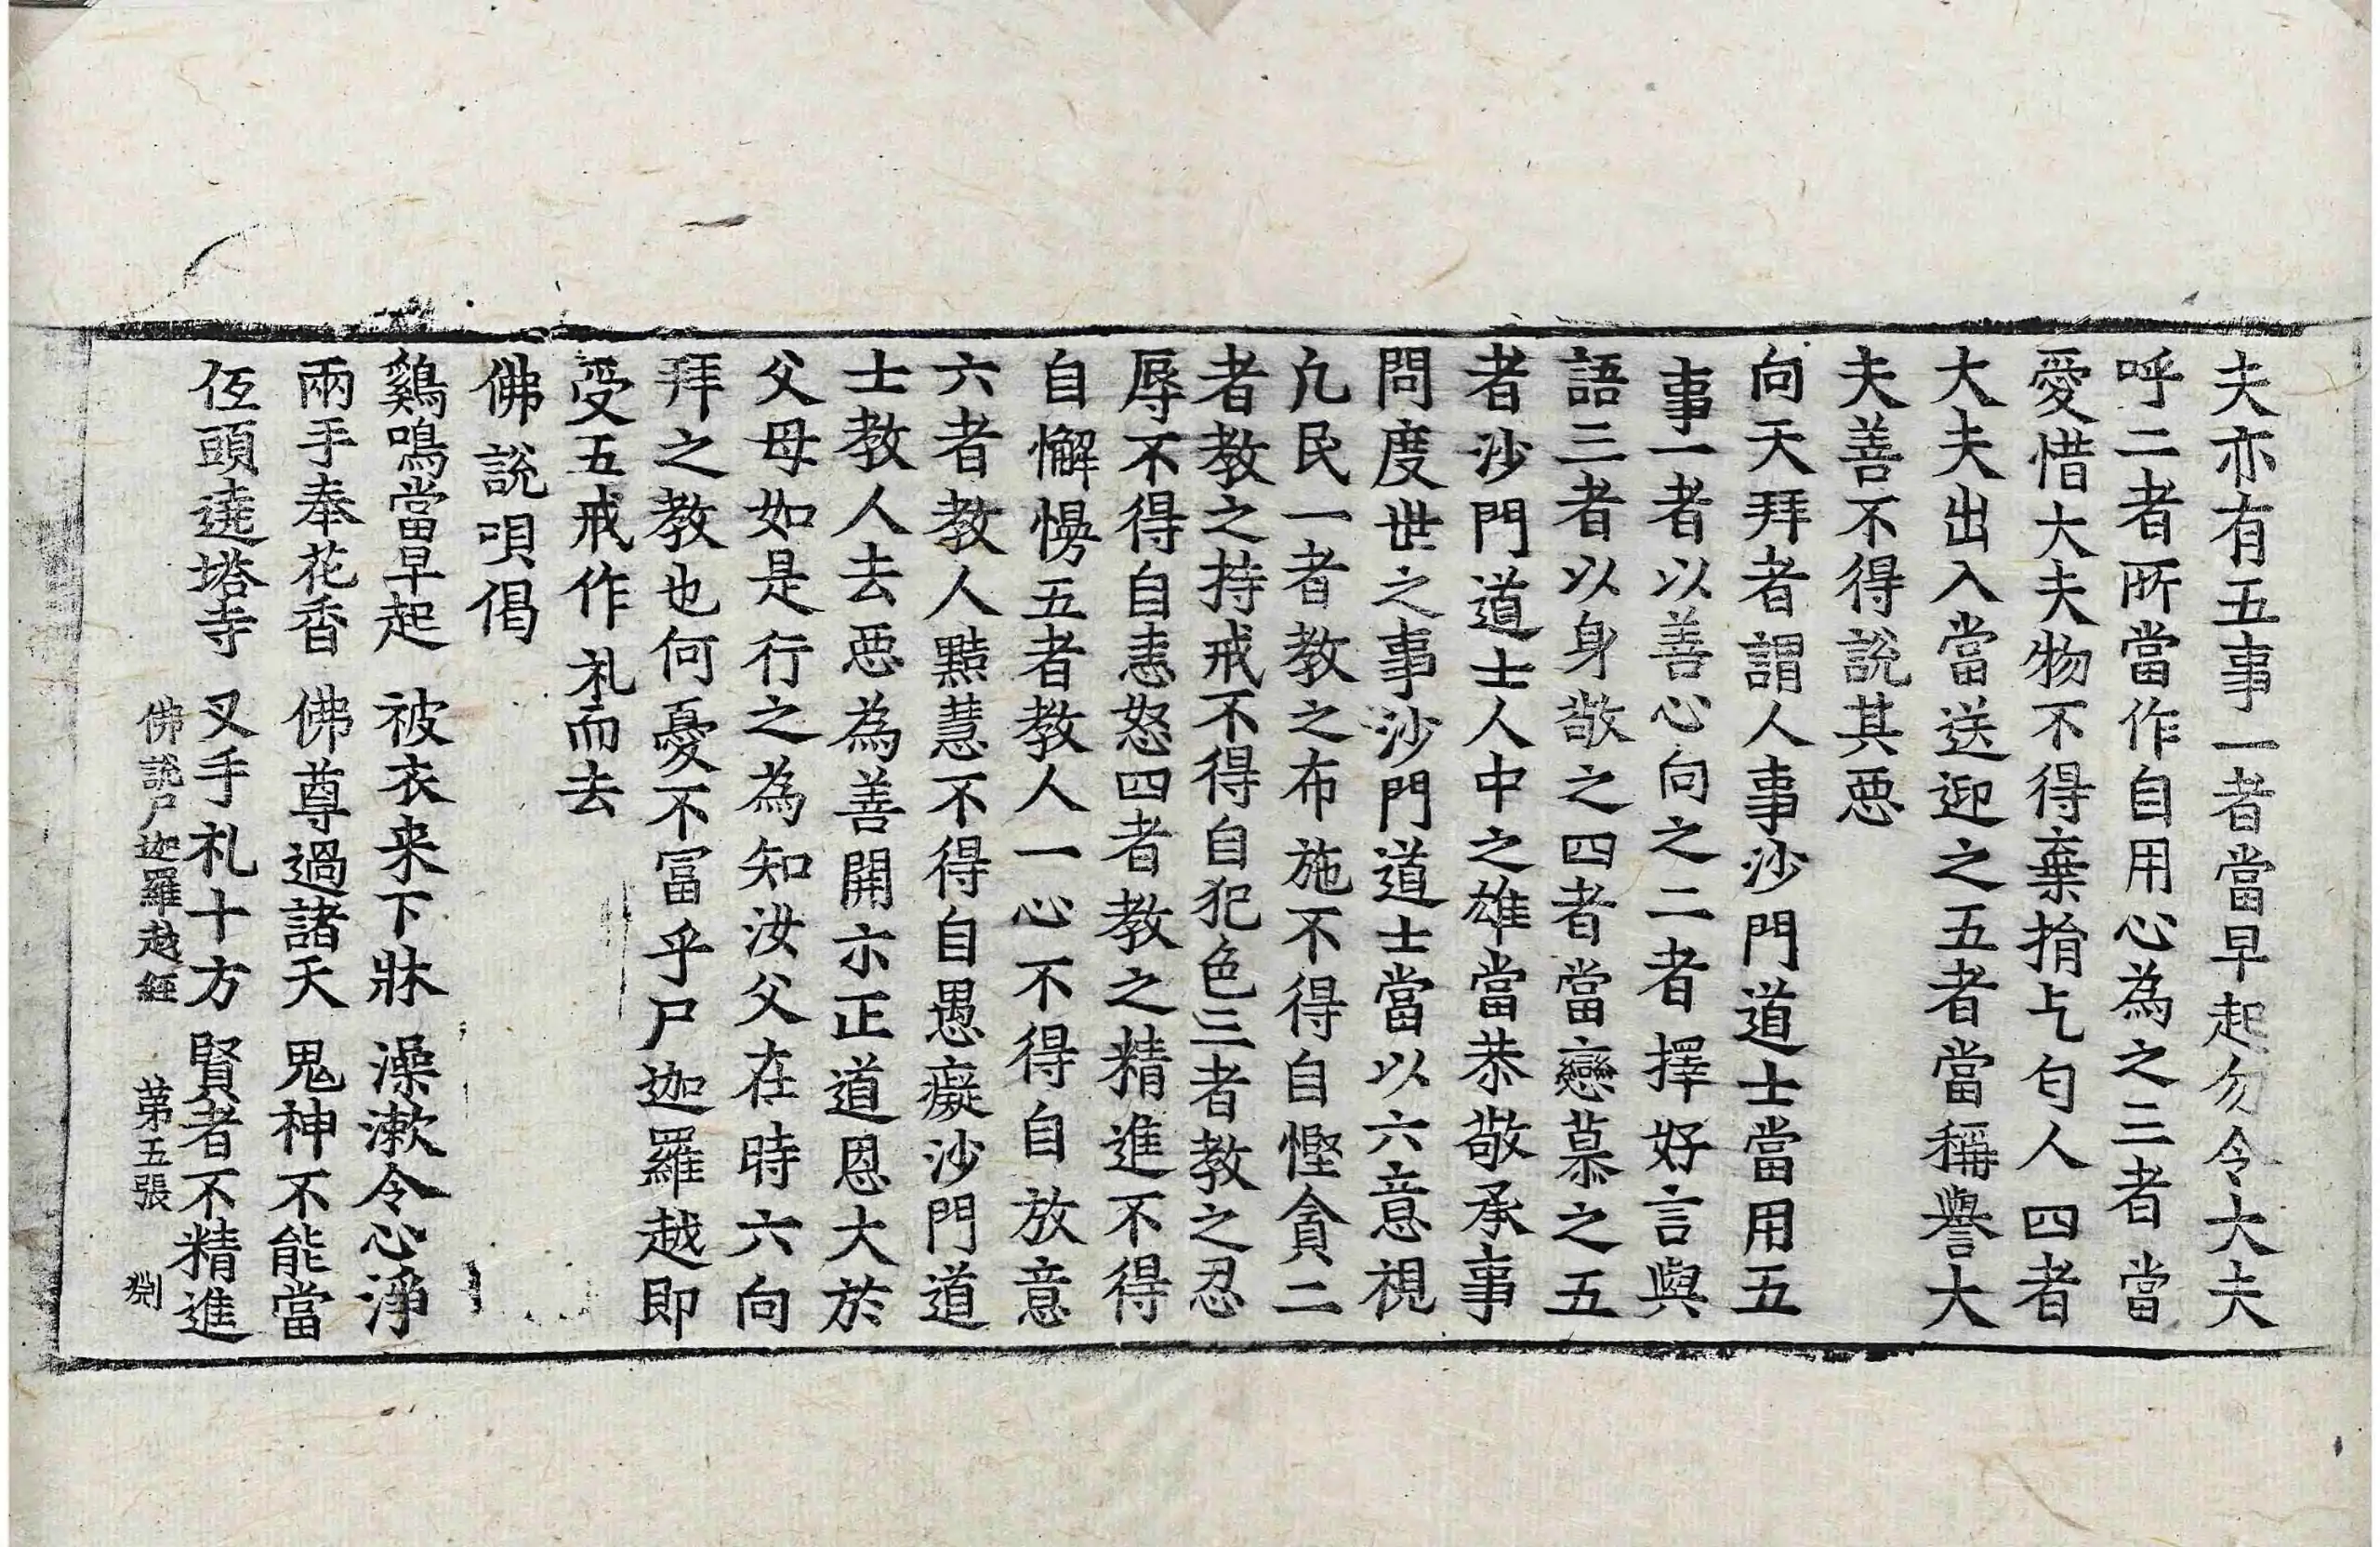 夫亦有五事一者當早起勿令大夫
呼二者所當作自用心為之三者當
愛惜大夫物不得棄捐乞匄人四者
大夫出入當送迎之五者當稱譽大
夫善不得說其惡
向天拜者謂人事沙門道士當用五
事一者以善心向之二者擇好言與
語三者以身敬之四者當戀慕之五
者沙門道士人中之雄當恭敬承事
問度世之事沙門道士當以六意視
凡民一者教之布施不得自慳貪二
者教之持戒不得自犯色三者教之忍
辱不得自恚怒四者教之精進不得
自懈慢五者教人一心不得自放意
六者教人黠慧不得自愚癡沙門道
士教人去惡為善開示正道恩大於
父母如是行之為知汝父在時六向
拜之教也何憂不冨乎尸迦羅越即
受五戒作礼而去
佛說唄偈
鷄鳴當早起 被衣来下牀 澡漱令心淨
兩手奉花香 佛尊過諸天 鬼神不能當
伍頭遶塔寺 叉手礼十方 賢者不精進
佛說尸迦羅越經 第五張 淵